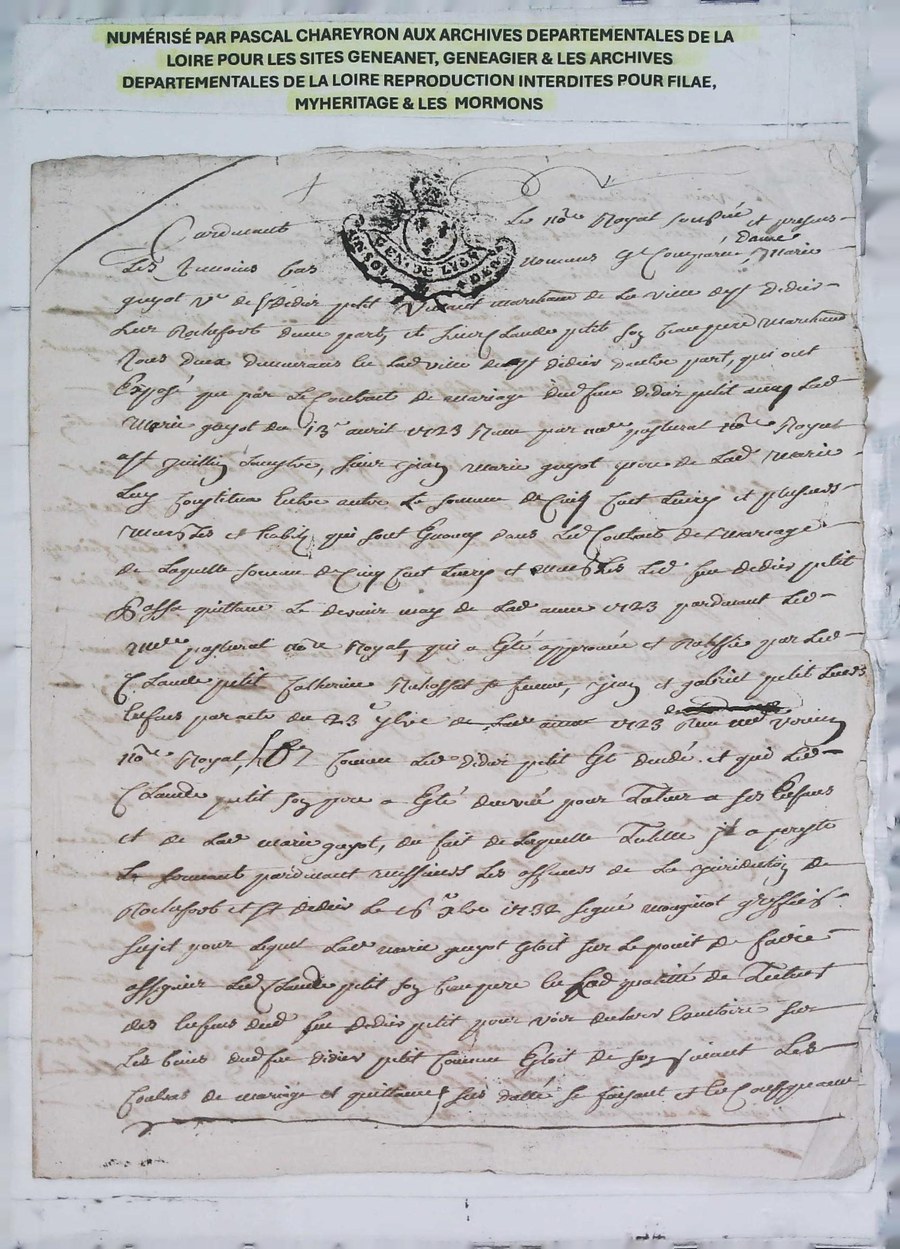 NUMÉRISÉ PAR PASCAL CHAREYRON AUX ARCHIVES DEPARTEMENTALES DE LA
LOIRE POUR LES SITES GENEANET, GENEAGIER & LES ARCHIVES
DEPARTEMENTALES DE LA LOIRE REPRODUCTION INTERDITES POUR FILAE,
MYHERITAGE & LES MORMONS
Pardevant Le nore Royal soussigné et present
Les temoins bas nommés Comparu Dame Marie
guyot ve de Sr Didier petit vivant marchand de la ville de st Didier
sur Rochefort dune part, et sieur Claude petit son beaupere marchand
tous deux demeurans en lad ville de st didier dautre part, qui ont
Exposé que par Le Contract de mariage dud feu didier petit avec lad
marie guyot du 13e avril 1723 Receu par me pasturat nore Royal
a st Jullien sieur marie guyot pere de lad marie
luy Constitua Entre autre La somme de Cinq Cent Livres et plusieurs
meubles et habits qui sont Enoncés dans led Contract de mariage
de laquelle somme de Cinq Cent livres et meubles led feu didier petit
passa quittance le may de lad année 1723 pardevant led
me pasturat nore Royal, qui a Eté approuvée et Ratiffiée par led
Claude petit Catherine sa femme, et gabriel petit leurs
Enfans par acte du 23e 1723
nore Royal, Comme led didier petit Est decedé et que led
Claude petit son pere a Eté pour Tuteur a ses Enfans
et de lad marie guyot, du fait de laquelle Tutelle il a presté
le serment pardevant messieurs les officiers de la juridiction de
Rochefort et st didier le 16e xbre 1732 signé greffier
sujet pour lequel lad marie guyot Etoit sur le point de faire
assigner led Claude petit son beaupere en lad qualité de Tuteur
des Enfans dud feu didier petit pour voir declarer Executoire sur
les biens dud feu didier petit Comme Etoit de son vivant les
Contrat de mariage et quittance sus datté se faisant et en Consequence